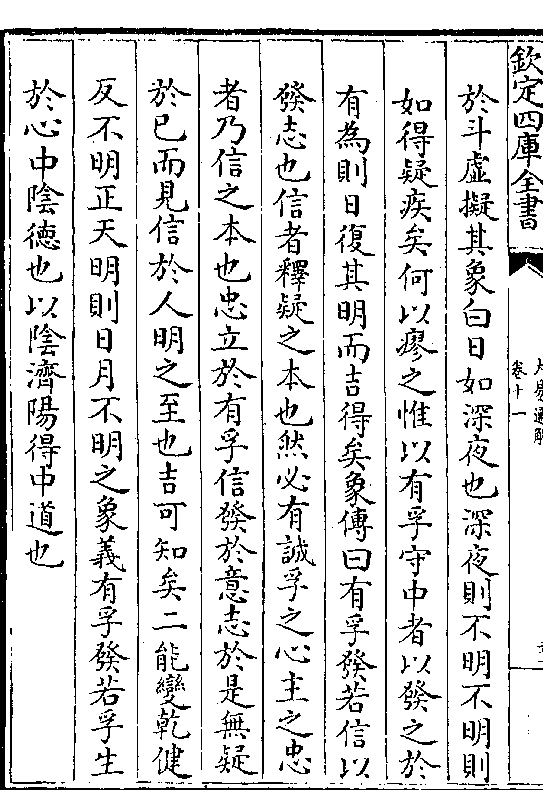 欽定四庫全書
卷十一
於斗虛擬其象白日如深夜也深夜則不明不明則
如得疑疾矣何以瘳之惟以有孚守中者以發之於
有為則日復其明而吉得矣象傳曰有孚發若信以
發志也信者釋疑之本也然必有誠孚之心主之忠
者乃信之本也忠立於有孚信發於意志於是無疑
於已而見信於人明之至也吉可知矣二能變乾健
反不明正天明則日月不明之象義有孚發若孚生
於心中陰德也以陰濟陽得中道也